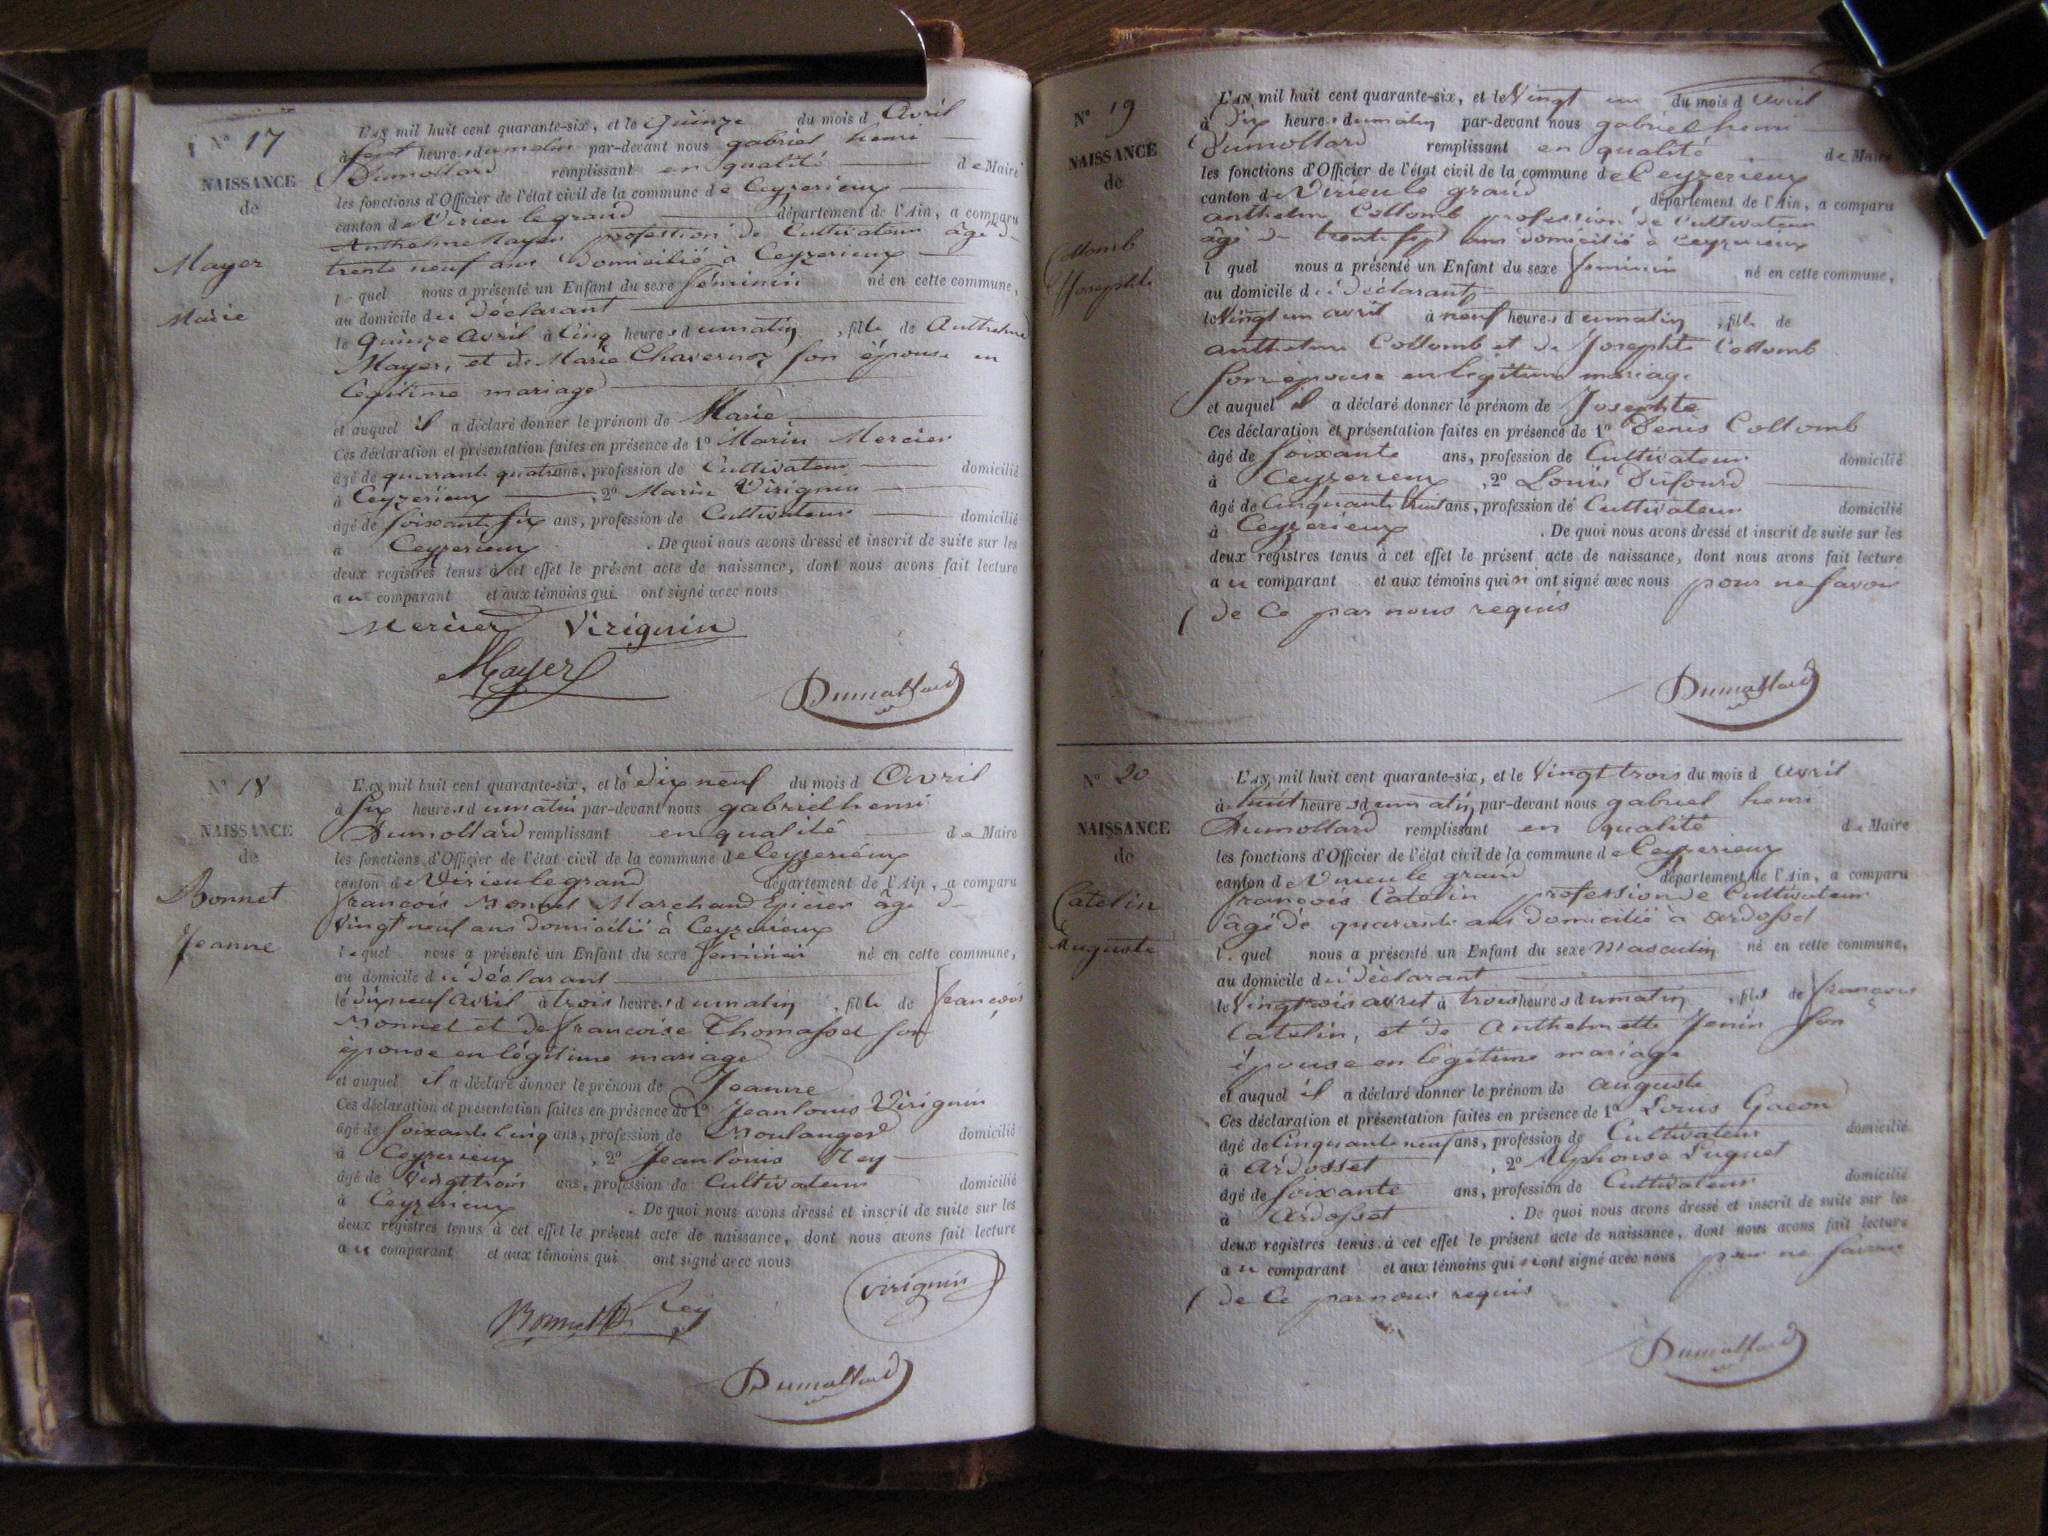 N° 17
NAISSANCE
de
Mayer
Marie
L'AN mil huit cent quarante-six, et le Quinze du mois d Avril
à sept heures du matin par-devant nous gabriel henri
Dumollard remplissant en qualité de Maire
les fonctions d'Officier de l'état civil de la commune de Ceyzerieux
canton de Virieu le grand département de l'Ain, a comparu
Anthelme Mayer profession de Cultivateur âgé de
trente neuf ans Domicilié à Ceyzerieux
lequel nous a présenté un Enfant du sexe féminin né en cette commune,
au domicile du Déclarant
le Quinze avril à Cinq heures du matin, fille de Anthelme
Mayer, et de Marie Chavernoz son épouse en
légitime mariage
et auquel il a déclaré donner le prénom de Marie
Ces déclaration et présentation faites en présence de 1° Marin Mercier
âgé de quarante quatre ans, profession de Cultivateur domicilié
à Ceyzerieux, 2° Marin Virignin
âgé de soixante six ans, profession de Cultivateur domicilié
à Ceyzerieux. De quoi nous avons dressé et inscrit de suite sur les
deux registres tenus à cet effet le présent acte de naissance, dont nous avons fait lecture
au comparant et aux témoins qui ont signé avec nous
Mercier Virignin
Mayer
Dumollard
N° 18
NAISSANCE
de
Bonnet
Jeanne
L'AN mil huit cent quarante-six, et le Dix neuf du mois d Avril
à six heures du matin par-devant nous gabriel henri
Dumollard remplissant en qualité de Maire
les fonctions d'Officier de l'état civil de la commune de Ceyzerieux
canton de Virieu le grand département de l'Ain, a comparu
françois Bonnet Marchand Epicier âgé de
Vingt neuf ans domicilié à Ceyzerieux
lequel nous a présenté un Enfant du sexe féminin né en cette commune,
au domicile du déclarant
le dix neuf avril à trois heures du matin, fille de françois
Bonnet et de françoise Thomasset son
épouse en légitime mariage
et auquel il a déclaré donner le prénom de Jeanne
Ces déclaration et présentation faites en présence de 1° Jean louis Virignin
âgé de soixante cinq ans, profession de Boulanger domicilié
à Ceyzerieux, 2° Jean louis Rey
âgé de Vingt trois ans, profession de Cultivateur domicilié
à Ceyzerieux. De quoi nous avons dressé et inscrit de suite sur les
deux registres tenus à cet effet le présent acte de naissance, dont nous avons fait lecture
au comparant et aux témoins qui ont signé avec nous
Bonnet Rey virignin
Dumollard
N° 19
NAISSANCE
de
Collomb
Josephte
L'AN mil huit cent quarante-six, et le Vingt un du mois d avril
à Dix heures du matin par-devant nous gabriel henri
Dumollard remplissant en qualité de Maire
les fonctions d'Officier de l'état civil de la commune de Ceyzerieux
canton de Virieu le grand, département de l'Ain, a comparu
anthelme Collomb profession de Cultivateur
âgé de trente sept ans domicilié à Ceyzerieux
lequel nous a présenté un Enfant du sexe féminin né en cette commune,
au domicile du déclarant
le Vingt un avril à neuf heures du matin, fille de
anthelme Collomb et de Josephte Collomb
son épouse en légitime mariage
et auquel il a déclaré donner le prénom de Josephte
Ces déclaration et présentation faites en présence de 1° Denis Collomb
âgé de soixante ans, profession de Cultivateur domicilié
à Ceyzerieux, 2° Louis Dufourd
âgé de Cinquante huit ans, profession de Cultivateur domicilié
à Ceyzerieux. De quoi nous avons dressé et inscrit de suite sur les
deux registres tenus à cet effet le présent acte de naissance, dont nous avons fait lecture
au comparant et aux témoins qui n ont signé avec nous pour ne savoir
de Ce par nous requis
Dumollard
N° 20
NAISSANCE
de
Catelin
Auguste
L'AN mil huit cent quarante-six, et le Vingt trois du mois d avril
à huit heures du matin par-devant nous gabriel henri
Dumollard remplissant en qualité de Maire
les fonctions d'Officier de l'état civil de la commune de Ceyzerieux
canton de Virieu le grand département de l'Ain, a comparu
françois Catelin profession de Cultivateur
âgé de quarante ans domicilié à ardosset
lequel nous a présenté un Enfant du sexe masculin né en cette commune,
au domicile du déclarant
le Vingt trois avril à trois heures du matin, fils de françois
Catelin, et de Anthelmette Jenin son
épouse en légitime mariage
et auquel il a déclaré donner le prénom de auguste
Ces déclaration et présentation faites en présence de 1° Louis Gacon
âgé de Cinquante neuf ans, profession de Cultivateur domicilié
à Ardosset, 2° Alphonse Huguet
âgé de soixante ans, profession de Cultivateur domicilié
à ardosset. De quoi nous avons dressé et inscrit de suite sur les
deux registres tenus à cet effet le présent acte de naissance, dont nous avons fait lecture
au comparant et aux témoins qui n ont signé avec nous pour ne savoir
de Ce par nous requis
Dumollard